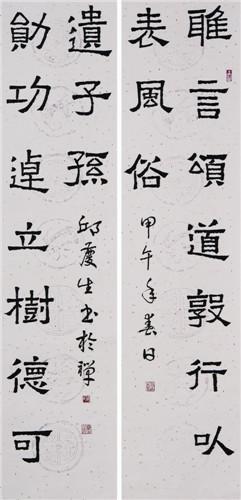 雅言頌道敦行以
表風俗
甲午年春日
勛功逴立樹德可
遺子孫
邱慶生书於禪